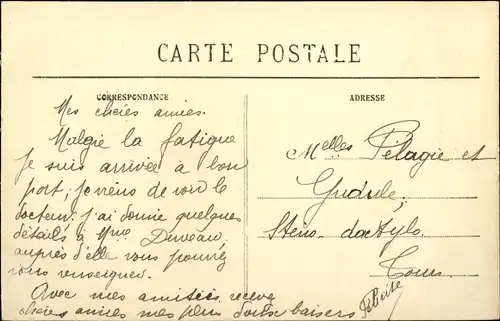 CARTE POSTALE
CORRESPONDANCE
Mes chères amies.
Malgré la fatigue
je suis arrivée à bon
port, je viens de voir le
docteur, j'ai donné quelques
détails à Mme Duveau,
auprès d'elle vous pourrez
vous renseigner.
Avec mes amitiés recevez
chères amies mes plus doux baisers
ADRESSE
Melles Pélagie et
Gudule,
Sténo-dactylo
Tours